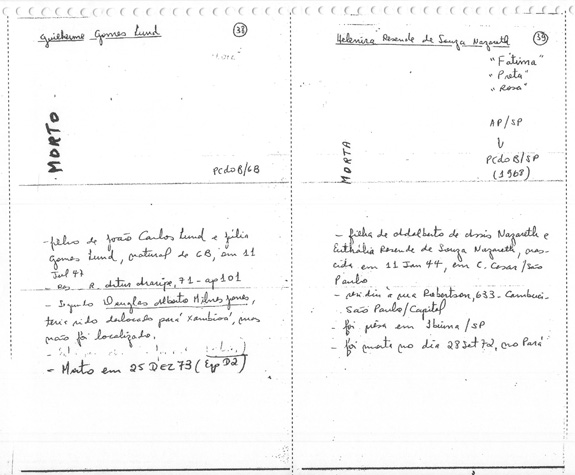 Guilherme Gomes Lund 38
MORTO
PCdoB/GB
- filho de João Carlos Lund e Júlia
Gomes Lund, natural de GB, em 11
Jul 47
- Res. - R. Artur Araripe, 71 - ap 101
- Segundo Douglas Alberto Milnes Jones,
teria sido deslocado para Xambioá, mas
não foi localizado.
- Morto em 25 DEZ 73 (
Helenira Resende de Souza Nazareth 39
"Fátima"
"Preta"
"Rosa"
AP/SP
↓
PCdoB/SP
(1968)
MORTA
- filha de Adalberto de Assis Nazareth e
Euthália Resende de Souza Nazareth, nas-
cida em 11 Jan 44, em C. Cesar/São
Paulo
- residiu à rua Robertson, 633 - Cambuci -
São Paulo/Capital
- foi presa em Ibiuna/SP
- foi morta no dia 28 Set 72, no Pará